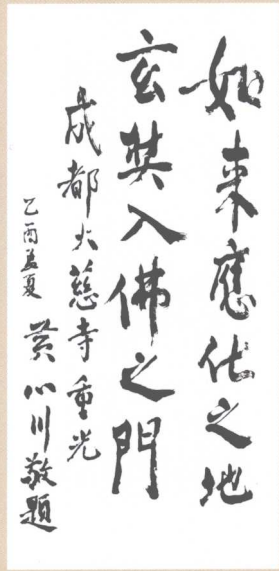 如来應化之地
玄奘入佛之門
成都大慈寺重光
乙酉孟夏 黄心川敬題